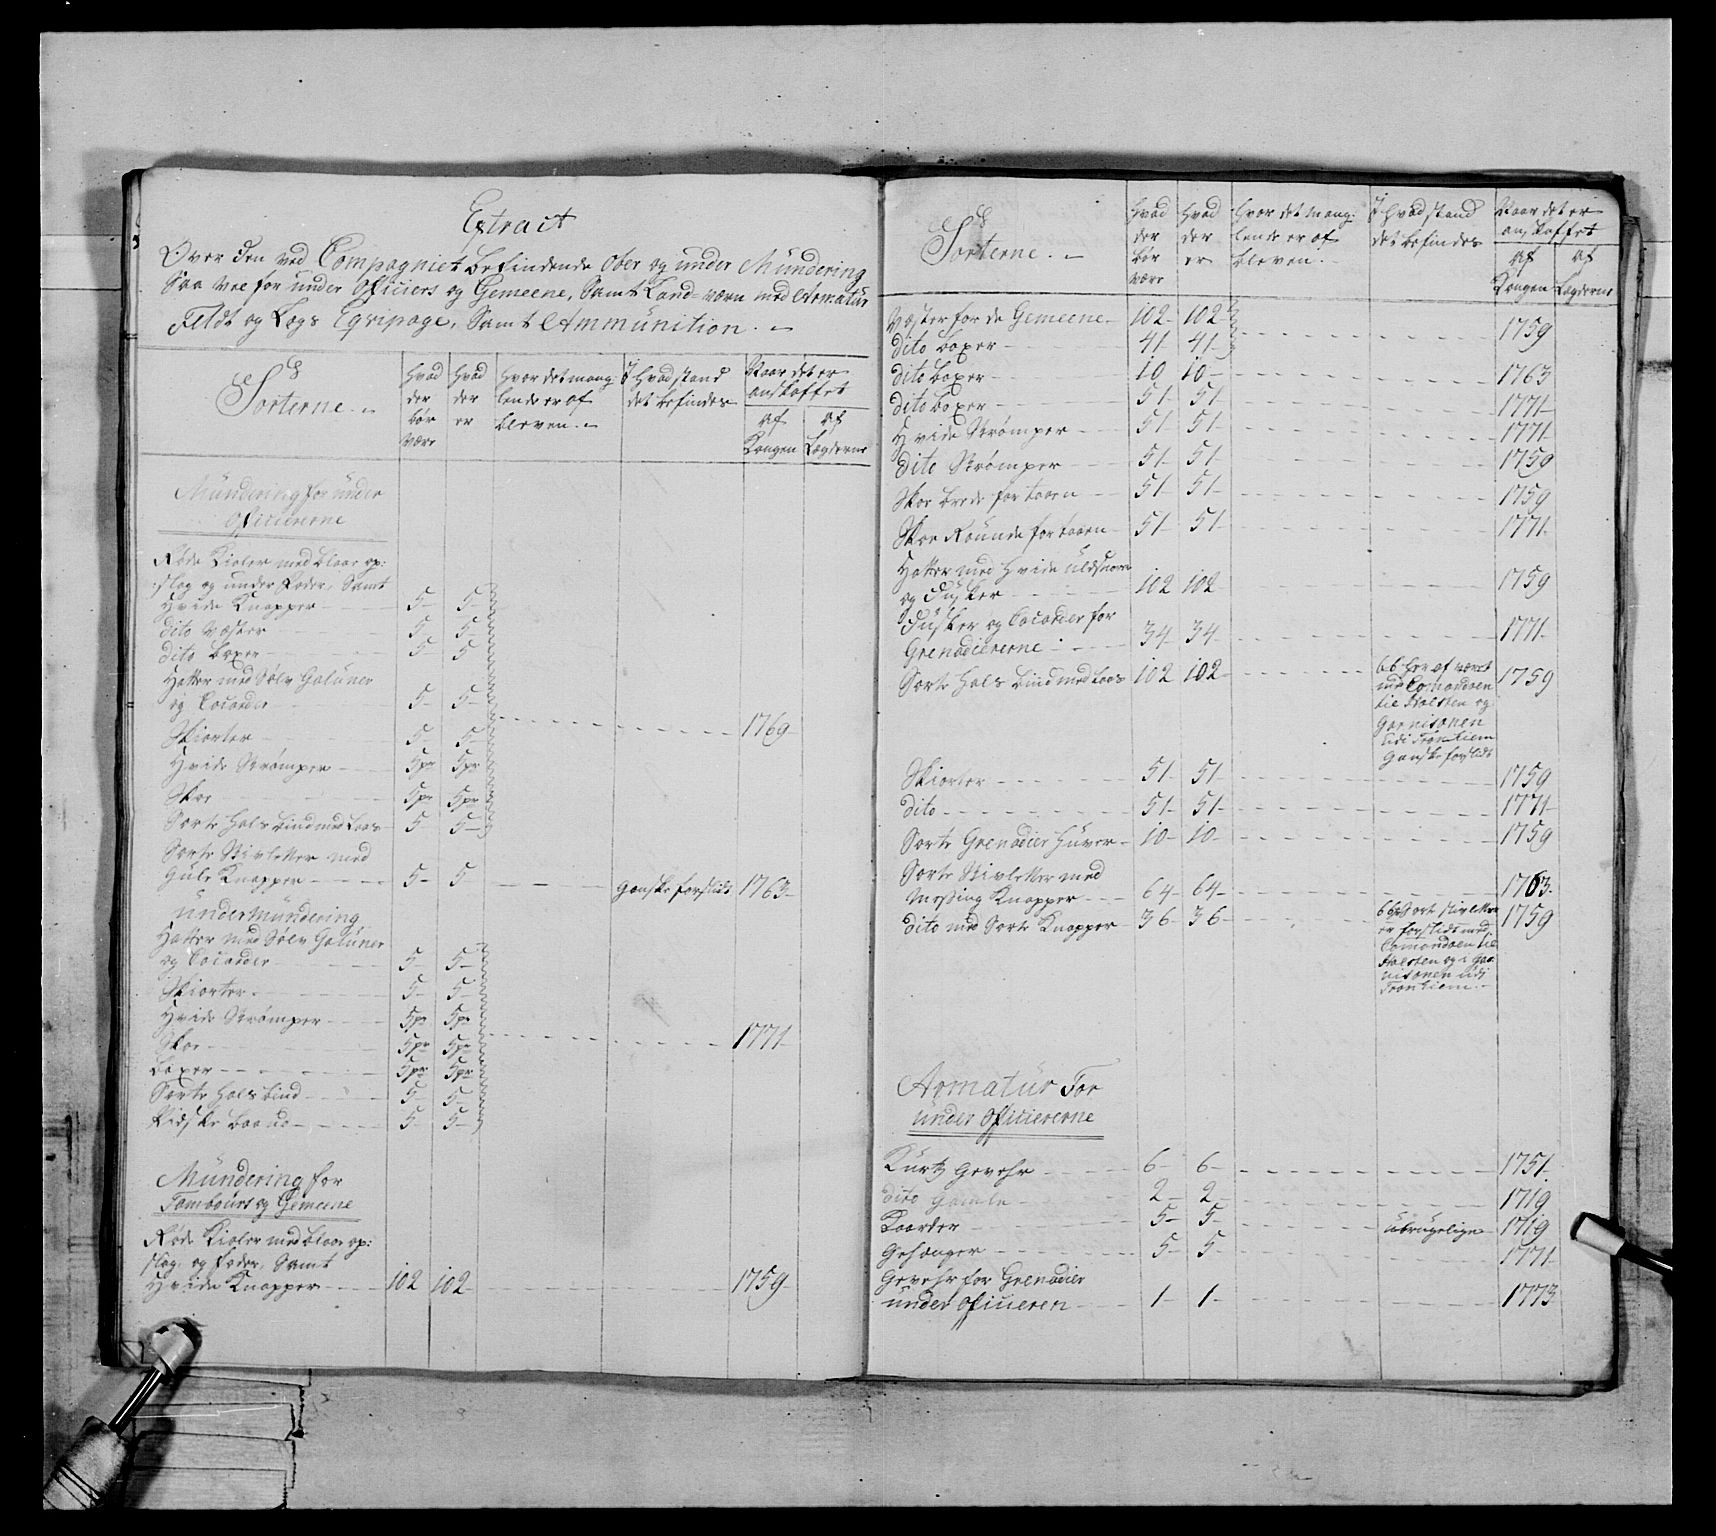 Extract
Over den ved Compagniet befindende Ober og under Mündering
Saa vel for under Officiers og Gemeene, Samt Land-værn med Armatur
Feldt og Logs Eqvipage, Samt Ammünition.
Sorterne.
Hvad der bör være
Hvad der er
Hvor det mang-lende er af bleven.
J hvad stand det befindes
Naar det er anskaffet
af Kongen
af Lægderne
Mündering for under
Officiererne
Røde Kioler med blaae op-
slag og under Foder, Samt
Hvide Knapper 5 5
dito Væster 5 5
dito boxer 5 5
Hatter med Sølv Galuner
og Cocarder 5 5
1769
Skiorter 5 5
Hvide Strømper 5 pr 5 pr
Skoe 5 pr 5 pr
Sorte Hals bind med Laas 5 5
Sorte Stivletter med
Gule Knapper 5 5 ganske forslidt 1763
undermündering
Hatter med Sølv Galuner
og Cocarder 5 5
Skiorter 5 5
Hvide Strømper 5 pr 5 pr
1771
Skoe 5 pr 5 pr
boxer 5 pr 5 pr
Sorte hals bind 5 5
5 5
Mündering for
Tambours og Gemeene
Røde Kioler med blaae op-
slag, og foeder, Samt
Hvide Knapper 102 102 1759
Sorterne.
Hvad der bör være
Hvad der er
Hvor det mang-lende er af bleven.
J hvad stand det befindes
Naar det er anskaffet
af Kongen
af Lægderne
Væster for de Gemeene 102 102
1759
dito boxer 41 41
dito boxer 10 10 1763
dito boxer 51 51 1771
Hvide Strømper 51 51 1771
dito Strømper 51 51 1759
Skoe brede for taaen 51 51 1759
Skoe Rounde for taaen 51 51 1771
Hatter med Hvide uldsnore
og Dusker 102 102 1759
Dusker og Cocarder for
Grenadiererne 34 34 1771
Sorte Hals bind med Laas 102 102 1759
66 her af været
med Comandoen
til Holsten og
Garnisonen
udi Tronhiem
Ganske forslidt
Skiorter 51 51 1759
dito 51 51 1771
Sorte Grenadier Huver 10 10 1759
Sorte Stivletter med
Messing Knapper 64 64 1763
dito med Sorte Knapper 36 36 1759
66 Sorte stivletter
er forslidt med
Comandoen til
Holsten og i Gar-
nisonen udi
Tronhiem
Armatur For
under Officiererne
Kurtz Gevehr 6 6 1751
dito gamle 2 2 1719
Kaarder 5 5 ubrugelige 1719
Gehænger 5 5 1771
Gevehr for Grenadier
under Officieren 1 1 1773